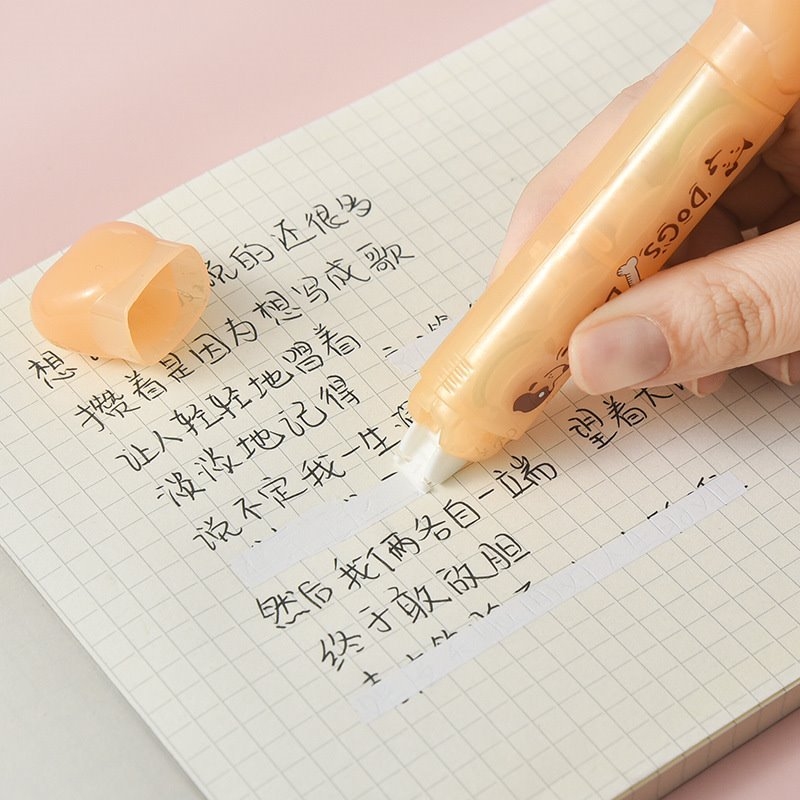 想 说的还很多
攒着是因为想写成歌
让人轻轻地唱着
淡淡地记得
说不定我一生
然后我俩各自一端 望着大
终于敢放胆
DOGS